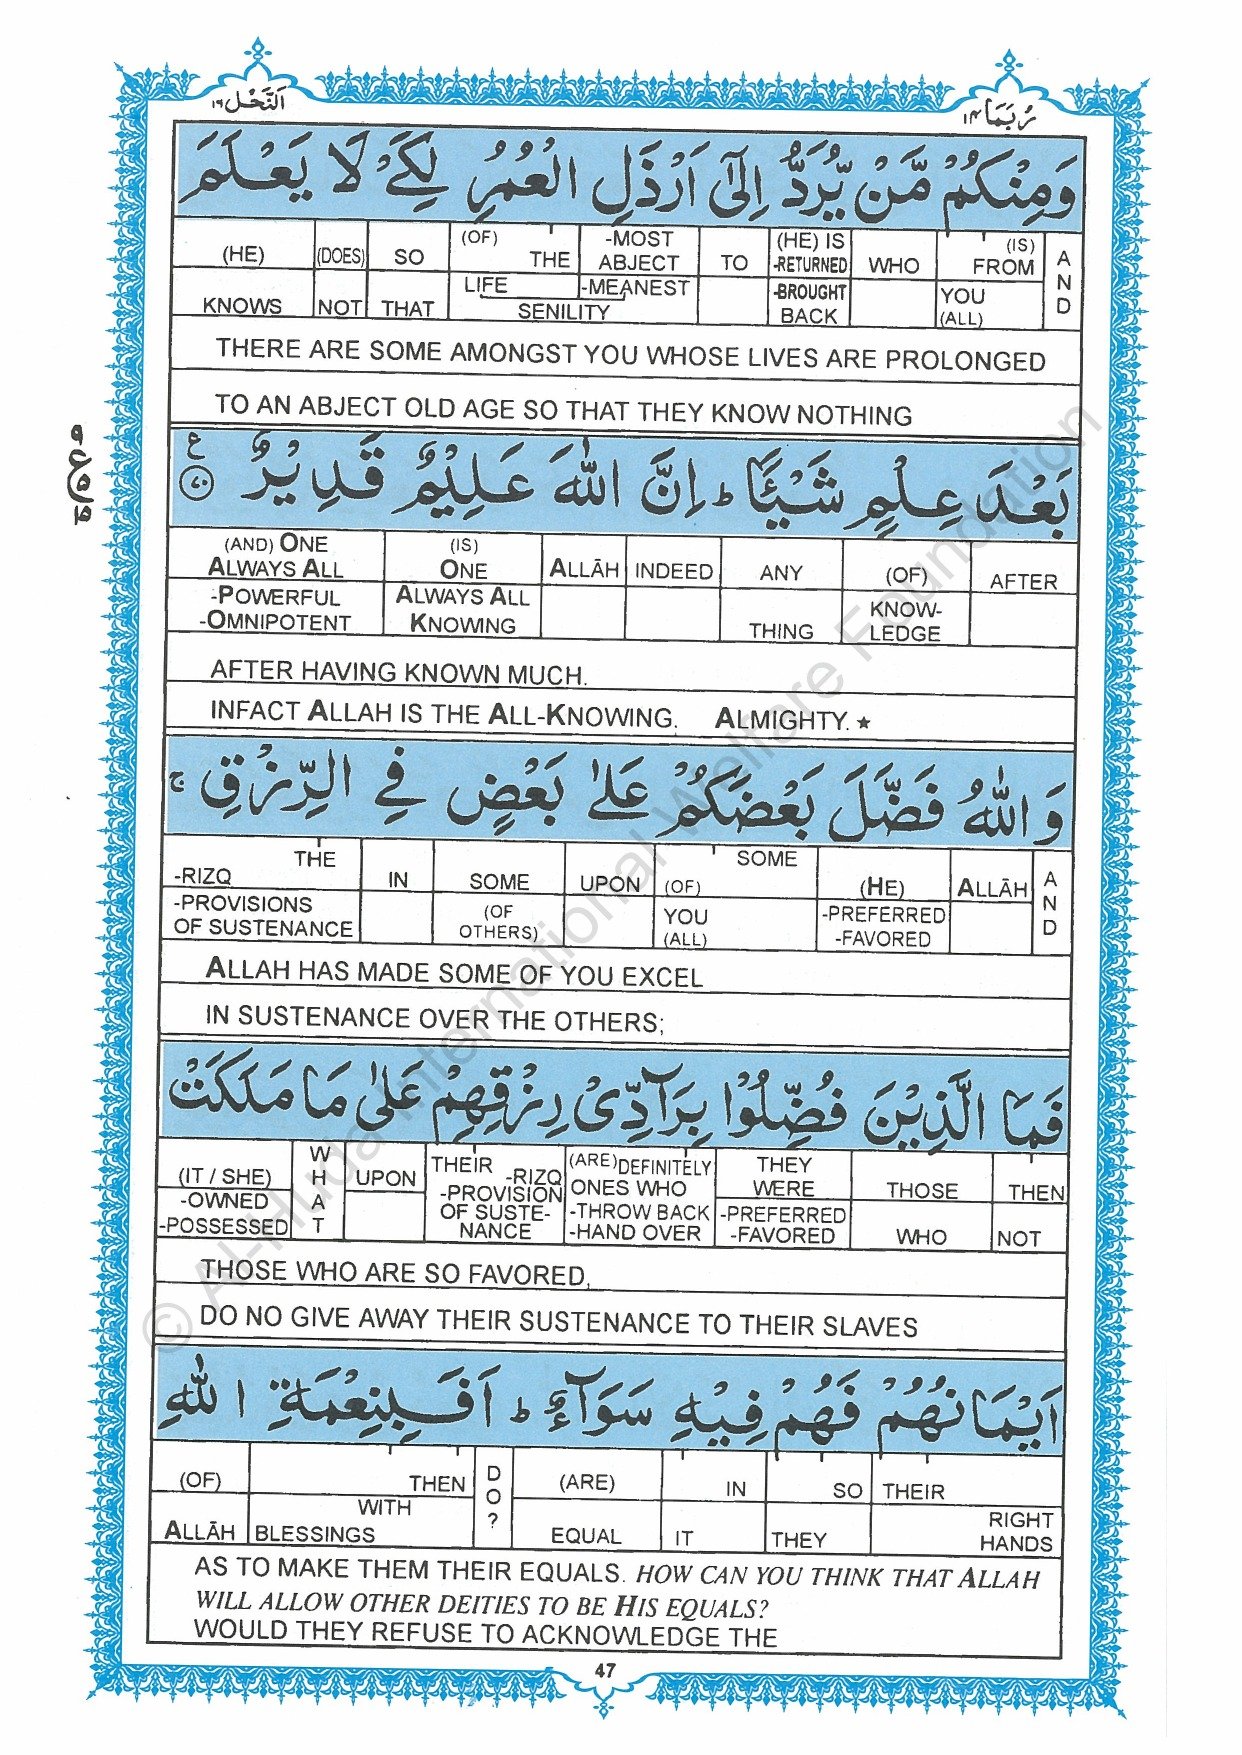 النَّحْل ١٦
رُبَمَا ١٤
وَمِنْكُمْ مَّنْ يُّرَدُّ اِلٰٓى اَرْذَلِ الْعُمُرِ لِكَيْ لَا يَعْلَمَ
(HE) (DOES) SO (OF) THE -MOST ABJECT TO (HE) IS -RETURNED WHO (IS) FROM AND
KNOWS NOT THAT LIFE -MEANEST SENILITY -BROUGHT BACK YOU (ALL)
THERE ARE SOME AMONGST YOU WHOSE LIVES ARE PROLONGED
TO AN ABJECT OLD AGE SO THAT THEY KNOW NOTHING
بَعْدَ عِلْمٍ شَيْـًٔا ط اِنَّ اللّٰهَ عَلِيْمٌ قَدِيْرٌ ٧٠ ع
٩ ع ٥ ١٥
(AND) ONE ALWAYS ALL (IS) ONE ALLĀH INDEED ANY (OF) AFTER
-POWERFUL -OMNIPOTENT ALWAYS ALL KNOWING THING KNOW-LEDGE
AFTER HAVING KNOWN MUCH.
INFACT ALLAH IS THE ALL-KNOWING, ALMIGHTY.★
وَاللّٰهُ فَضَّلَ بَعْضَكُمْ عَلٰى بَعْضٍ فِي الرِّزْقِ ج
THE -RIZQ IN SOME UPON SOME (OF) (HE) ALLĀH AND
-PROVISIONS OF SUSTENANCE (OF OTHERS) YOU (ALL) -PREFERRED -FAVORED
ALLAH HAS MADE SOME OF YOU EXCEL
IN SUSTENANCE OVER THE OTHERS;
فَمَا الَّذِيْنَ فُضِّلُوْا بِرَآدِّيْ رِزْقِهِمْ عَلٰى مَا مَلَكَتْ
(IT / SHE) WHAT UPON THEIR -RIZQ (ARE) DEFINITELY ONES WHO THEY WERE THOSE THEN
-OWNED -POSSESSED -PROVISION OF SUSTE-NANCE -THROW BACK -HAND OVER -PREFERRED -FAVORED WHO NOT
THOSE WHO ARE SO FAVORED,
DO NO GIVE AWAY THEIR SUSTENANCE TO THEIR SLAVES
اَيْمَانُهُمْ فَهُمْ فِيْهِ سَوَآءٌ ط اَفَبِنِعْمَةِ اللّٰهِ
(OF) THEN DO? (ARE) IN SO THEIR
ALLĀH WITH BLESSINGS EQUAL IT THEY RIGHT HANDS
AS TO MAKE THEM THEIR EQUALS. HOW CAN YOU THINK THAT ALLAH
WILL ALLOW OTHER DEITIES TO BE HIS EQUALS?
WOULD THEY REFUSE TO ACKNOWLEDGE THE
47
© Al-Huda International Welfare Foundation